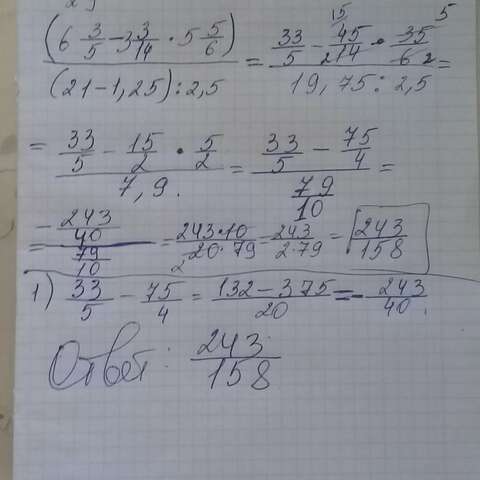 (6 3/5 - 3 3/14 · 5 5/6) / ((21 - 1,25) : 2,5) = (33/5 - 45/14 · 35/6) / (19,75 : 2,5) =
= (33/5 - 15/2 · 5/2) / 7,9. = (33/5 - 75/4) / (79/10) =
= (-243/40) / (79/10) = 243·10 / 20·79 = 243 / 2·79 = 243/158
1) 33/5 - 75/4 = (132 - 375)/20 = - 243/40.
Ответ: 243/158